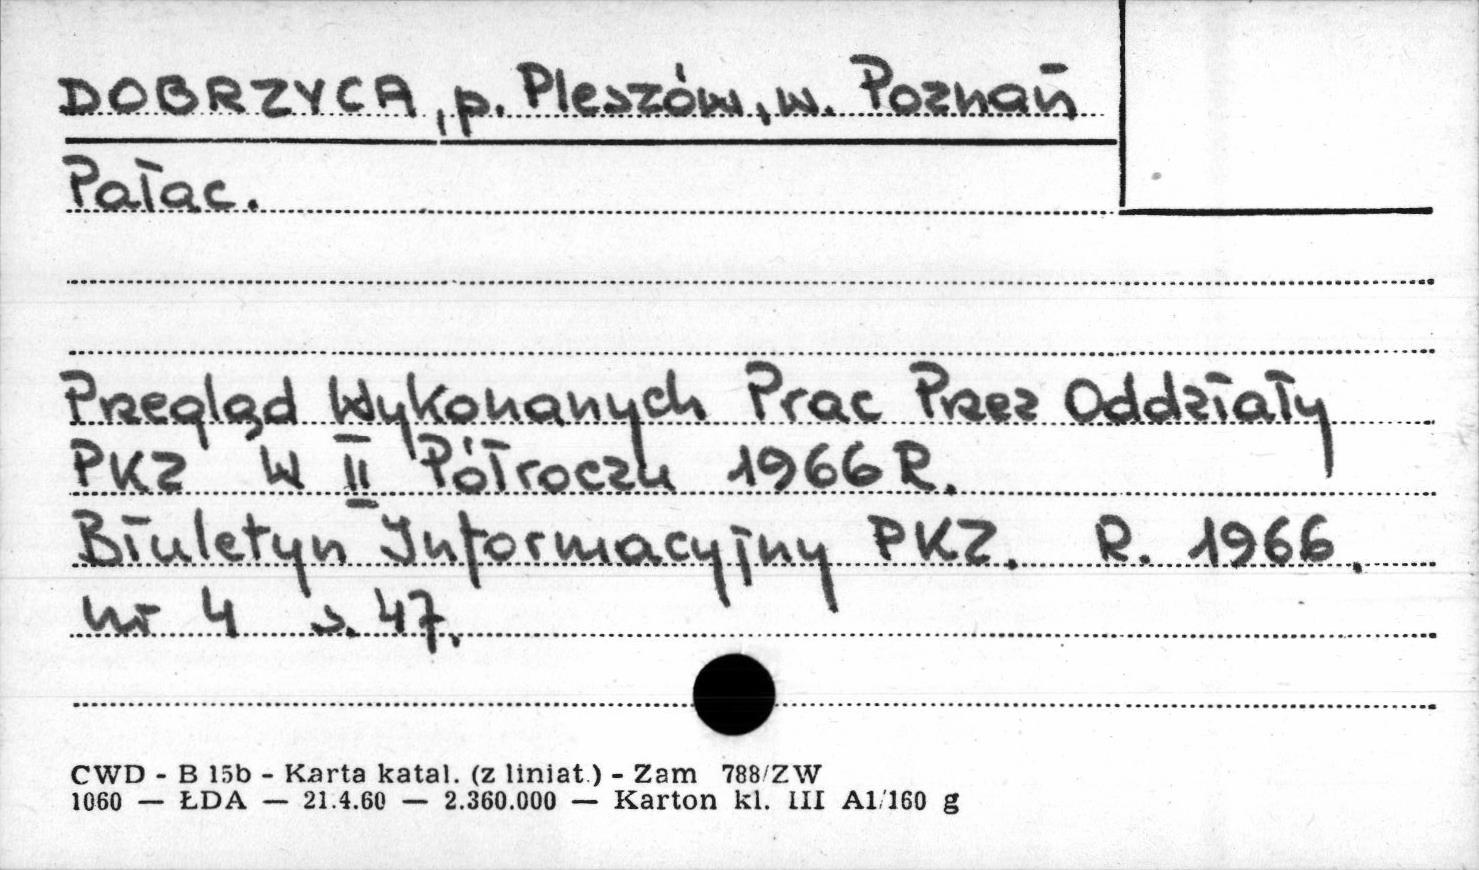 DOBRZYCA, p. Pleszów, w. Poznań
Pałac.
Przegląd Wykonanych Prac Przez Oddziały
PKZ W II Półroczu 1966 R.
Biuletyn Informacyjny PKZ. R. 1966.
nr 4 s. 47.
CWD - B 15b - Karta katal. (z liniat.) - Zam 788/ZW
1060 — ŁDA — 21.4.60 — 2.360.000 — Karton kl. III A1/160 g